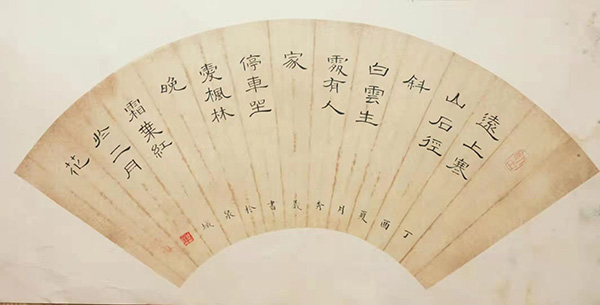 遠上寒
山石徑
斜
白雲生
處有人
家
停車坐
愛楓林
晚
霜葉紅
於二月
花
丁酉夏月秀義書於泉城